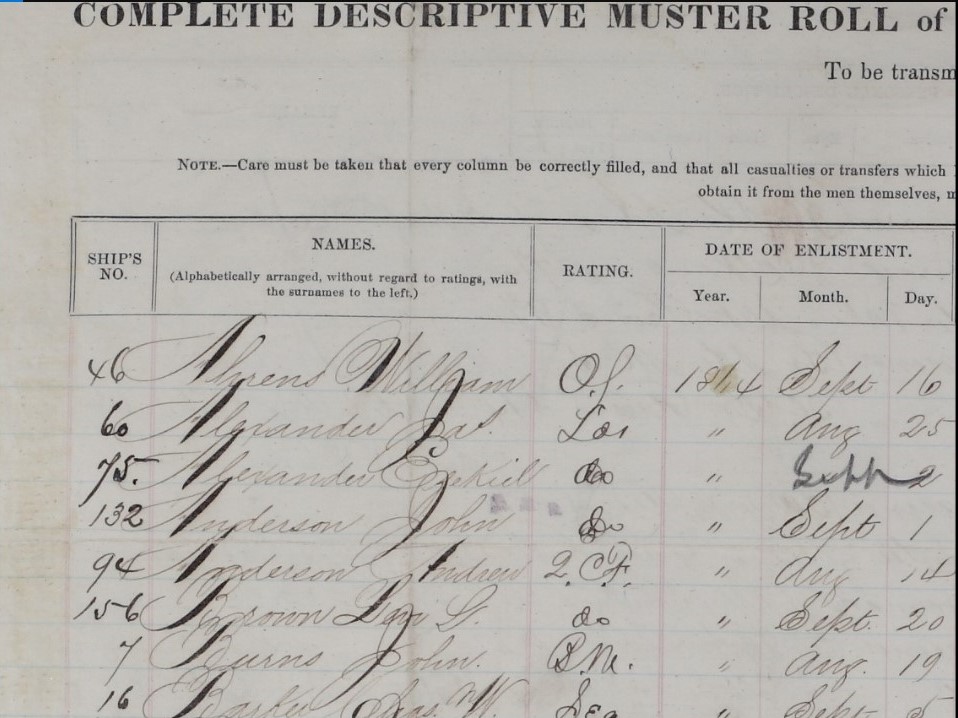 COMPLETE DESCRIPTIVE MUSTER ROLL of
To be transm
NOTE.—Care must be taken that every column be correctly filled, and that all casualties or transfers which
obtain it from the men themselves,
SHIP'S NO. NAMES. (Alphabetically arranged, without regard to ratings, with the surnames to the left.) RATING. DATE OF ENLISTMENT. Year. Month. Day.
46 Ahrens William 1864 Sept 16
60 Alexander Jas. Las " Aug 25
75. Alexander Ezekiel do " Sept 2
132 Anderson John do " Sept 1
94 Anderson Andrew 2. C.F. " Aug 14
156 Brown Levi G. do " Sept. 20
7 Burns John. B.M. " Aug. 19
16 Barker Chas. W. Sea Sept 5